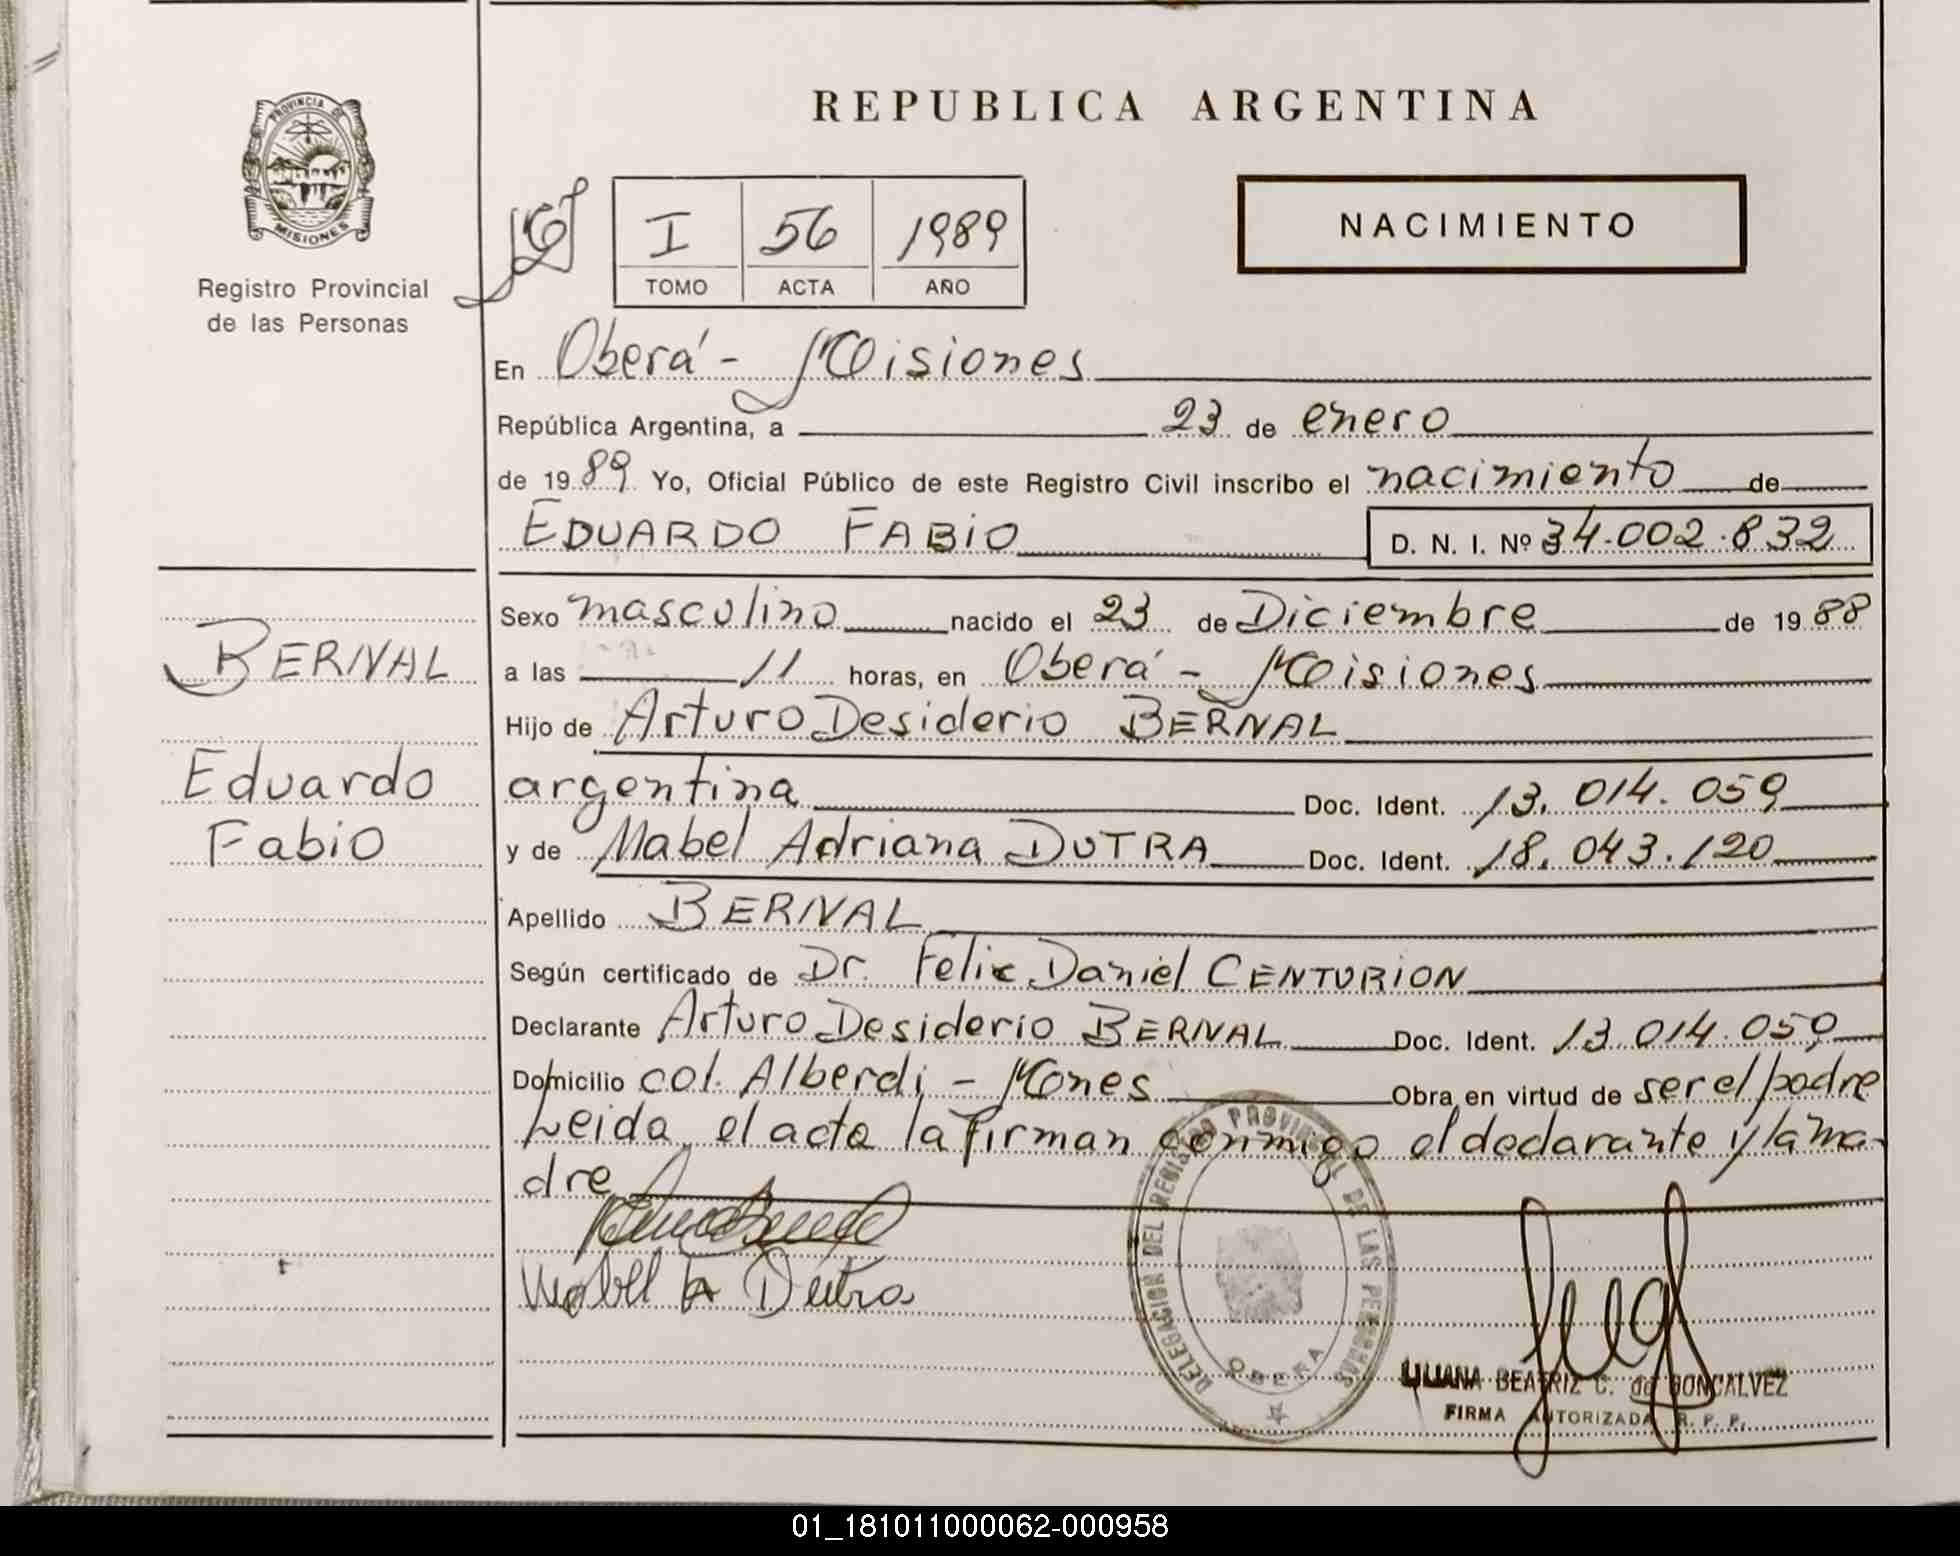 REPUBLICA ARGENTINA
PROVINCIA DE
MISIONES
Registro Provincial
de las Personas
I 56 1989
TOMO ACTA AÑO
NACIMIENTO
En Oberá - Misiones
República Argentina, a 23 de enero
de 1989 Yo, Oficial Público de este Registro Civil inscribo el nacimiento de
EDUARDO FABIO D. N. I. Nº 34.002.832
Sexo masculino nacido el 23 de Diciembre de 1988
a las 11 horas, en Oberá - Misiones
Hijo de Arturo Desiderio BERNAL
argentina Doc. Ident. 13.014.059
y de Mabel Adriana DUTRA Doc. Ident. 18.043.120
Apellido BERNAL
Según certificado de Dr. Felix Daniel CENTURION
Declarante Arturo Desiderio BERNAL Doc. Ident. 13.014.059
Domicilio col. Alberdi - Mones Obra en virtud de ser el padre
Leida el acta la firman conmigo el declarante y la ma-
dre
BERNAL
Eduardo
Fabio
Mabel A Dutra
DELEGACION DEL REGISTRO PROVINCIAL DE LAS PERSONAS
OBERA
LILIANA BEATRIZ C. de GONCALVEZ
FIRMA AUTORIZADA R. P. P.
01_181011000062-000958